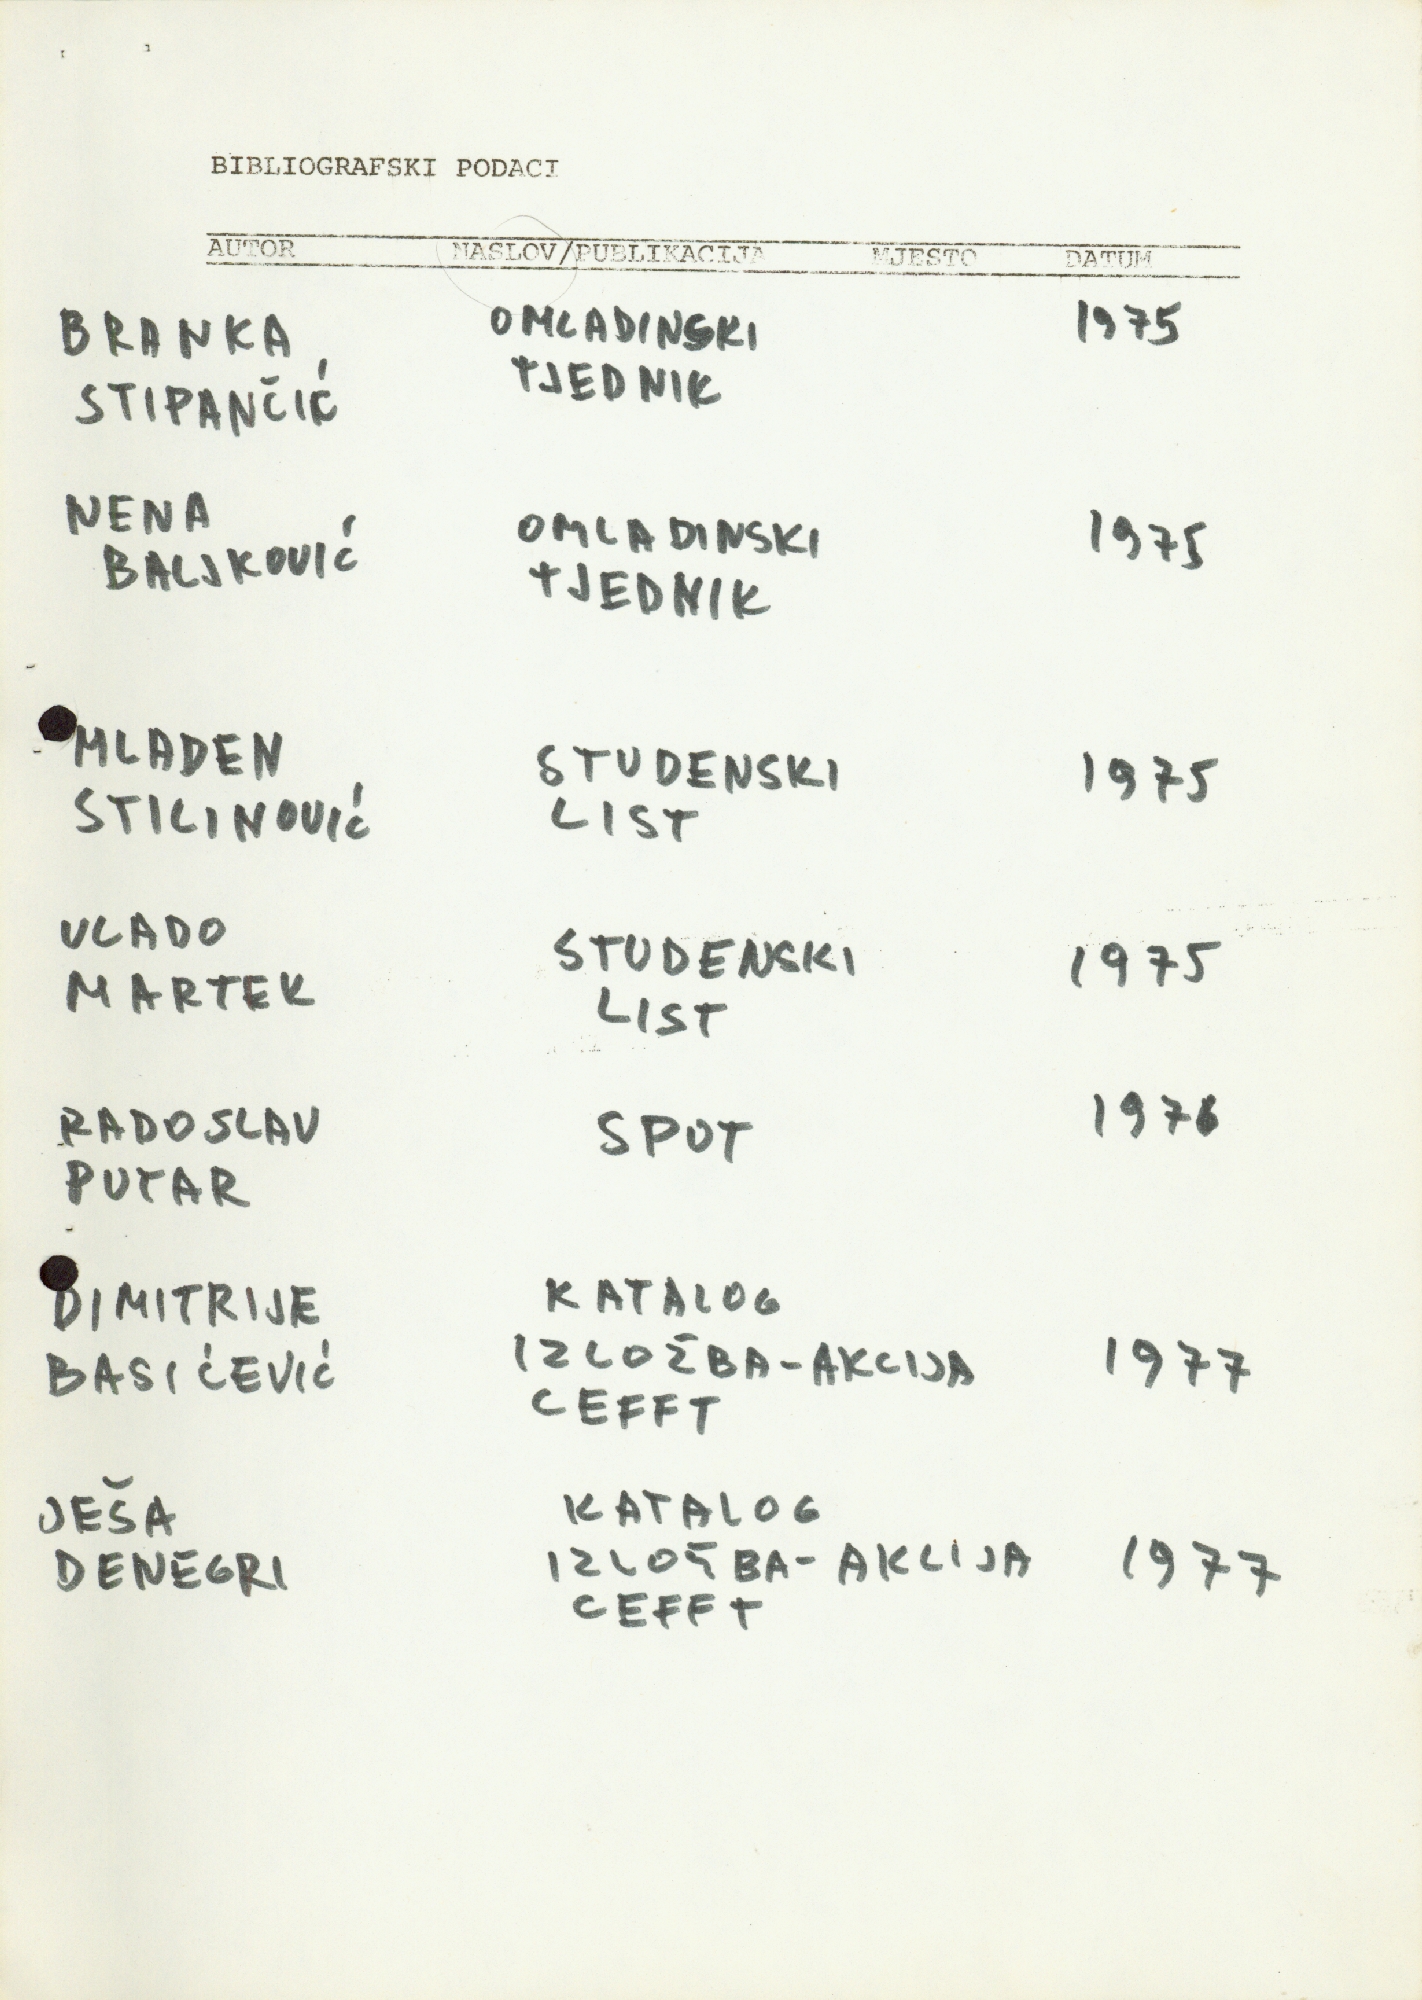 BIBLIOGRAFSKI PODACI
AUTOR NASLOV/PUBLIKACIJA MJESTO DATUM
BRANKA OMLADINSKI 1975
STIPANČIĆ TJEDNIK
NENA OMLADINSKI 1975
BALJKOVIĆ TJEDNIK
MLADEN STUDENSKI 1975
STILINOVIĆ LIST
VLADO STUDENSKI 1975
MARTEK LIST
RADOSLAV SPOT 1976
PUTAR
DIMITRIJE KATALOG
BASIĆEVIĆ IZLOŽBA-AKCIJA 1977
CEFFT
JEŠA KATALOG
DENEGRI IZLOŽBA-AKCIJA 1977
CEFFT